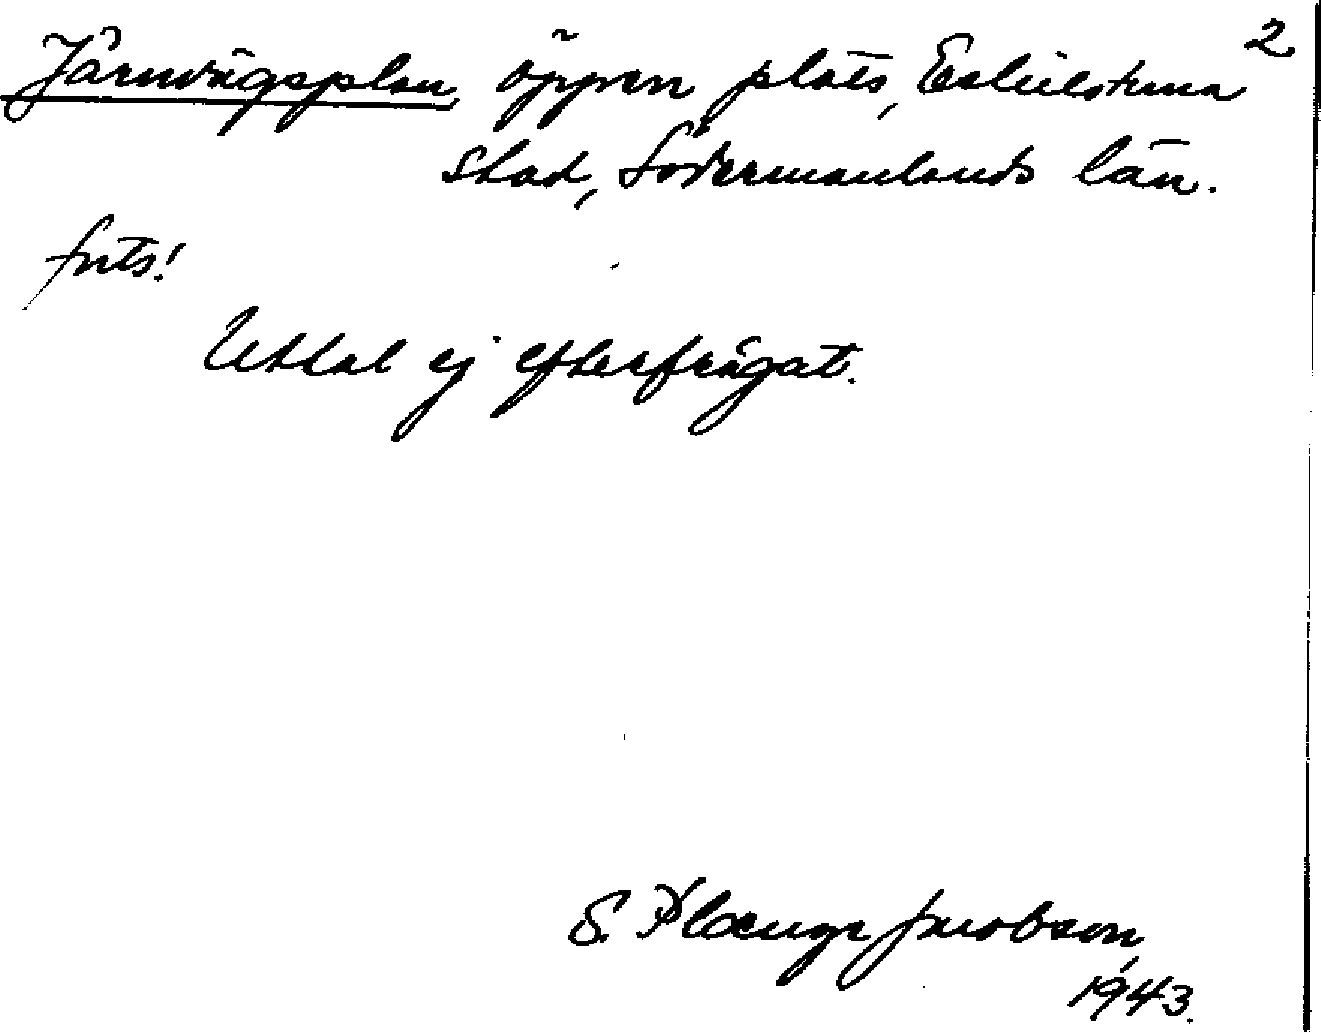 2
Järnvägsplan, öppen plats, Eskilstuna
stad, Södermanlands län.
forts!
Uttal ej efterfrågat.
S. Plænge Jacobson,
1943.